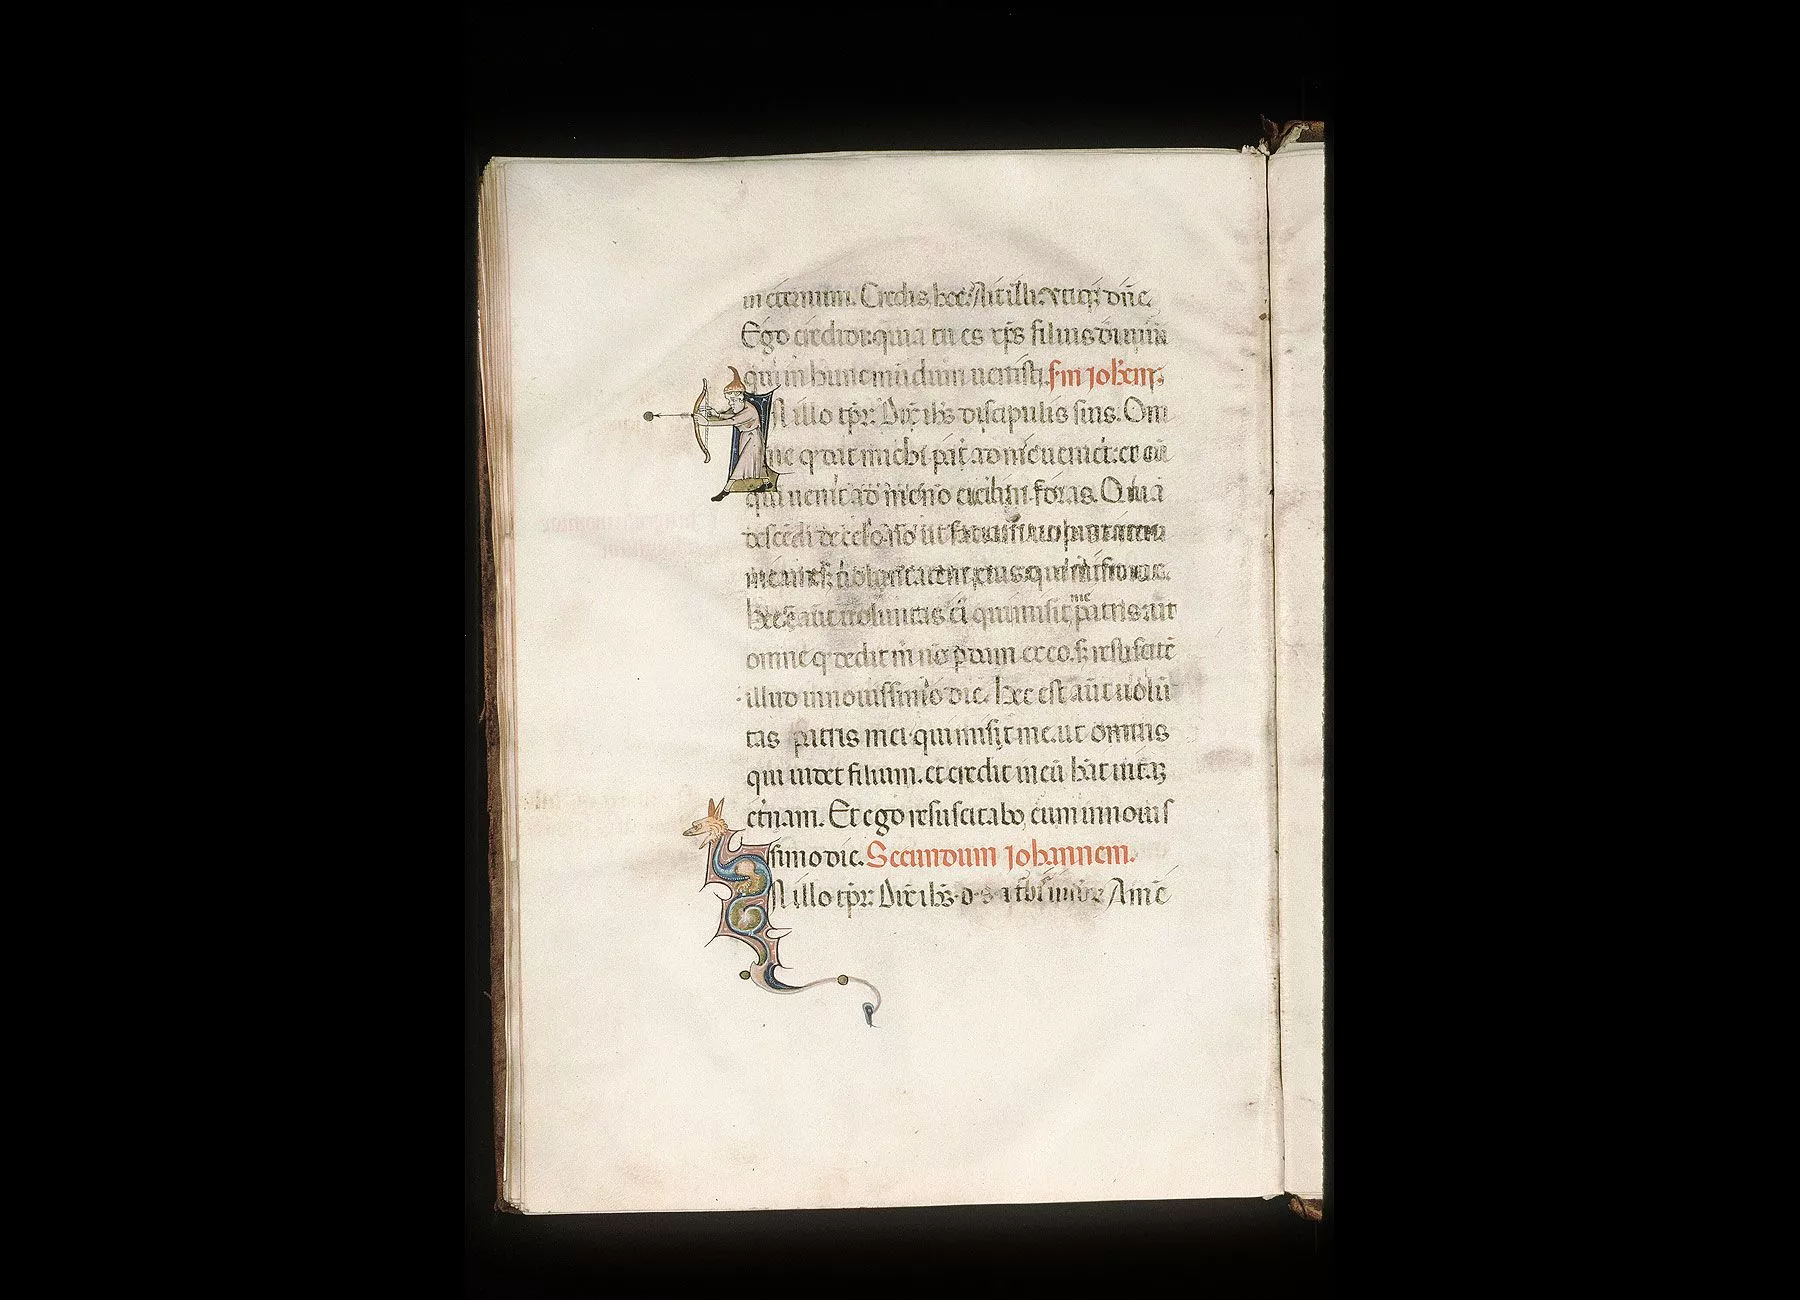 in eternum. Credis hoc? Ait illi. Vtiqꝫ dn̄e.
Ego credidi. quia tu es xp̄s filius dei uiui
qui in hunc mūdum uenisti. s̄. in ioh̄em.
In illo tp̄r. Dix̄ ih̄s discipulis suis. Om
ne qd̛ dat michi pat̛ ad me ueniet. et eū
qui uenit ad me nō eiciam foras. Quia
descēdi de celo. nō ut faciam uoluntatem
meam. sꝫ uoluntatem eius qui misit me.
Hec ē aūt uoluntas ei̛ qui misit me patris. ut
omne qd̛ dedit m̄ nō p̄dam ex eo. sꝫ resuscitē
illud in nouissimo die. Hec est aūt uolū
tas patris mei qui misit me. ut omnis
qui uidet filium. et credit in eū hāt uitā
et̛nam. Et ego resuscitabo eum in nouis
simo die. Secundum iohannem.
In illo tp̄r. Dix̄ ih̄s. d. s. 𝔷 Amē